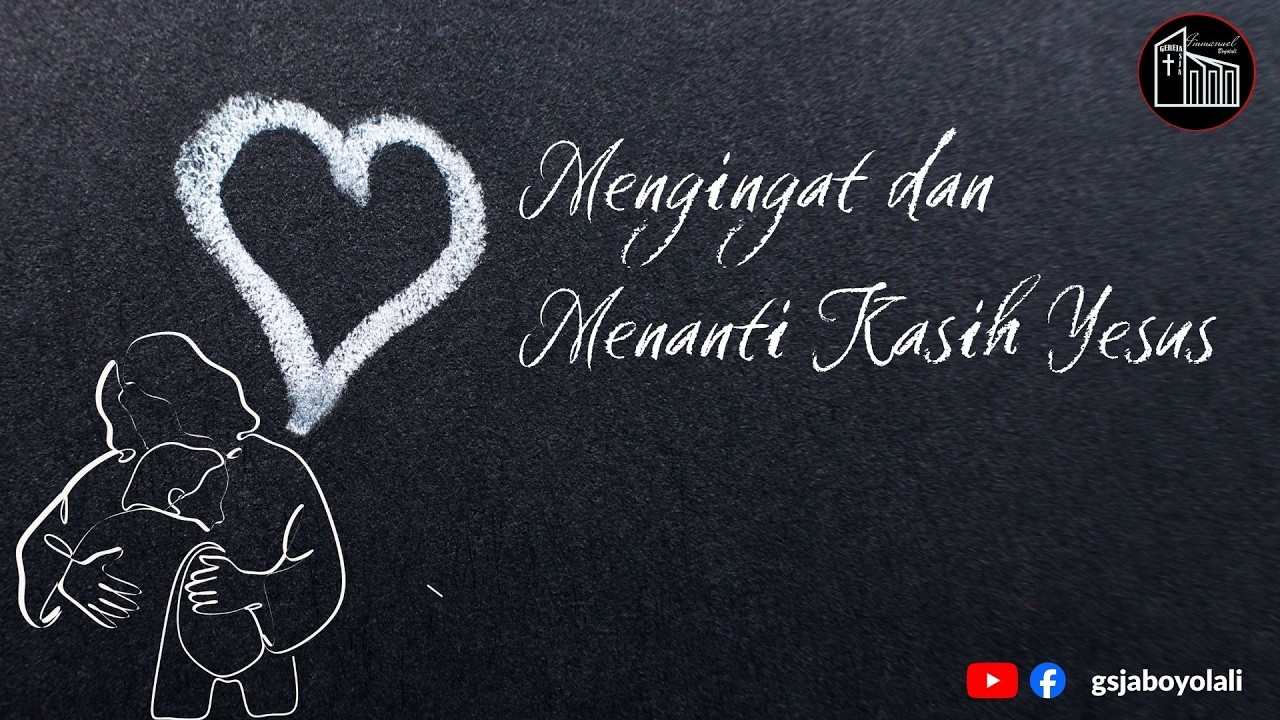 Immanuel
Boyolali
GEREJA
SJA
Mengingat dan
Menanti Kasih Yesus
gsjaboyolali